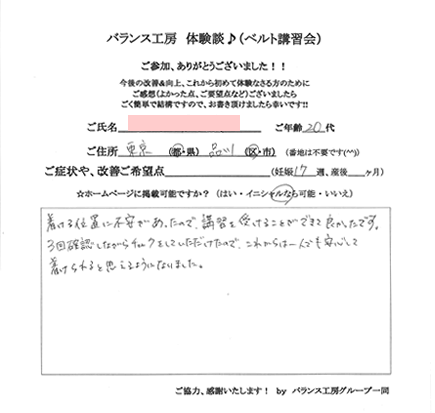 バランス工房 体験談♪(ベルト講習会)
ご参加、ありがとうございました!!
今後の改善&向上、これから初めて体験なさる方のために
ご感想(よかった点、ご要望点など)ございましたら
ごく簡単で結構ですので、お書き頂けましたら幸いです!!
ご氏名 ご年齢 20 代
ご住所 東京 (都・県) 品川 (区・市) (番地は不要です(^^))
ご症状や、改善ご希望点 (妊娠 17 週、産後 ヶ月)
☆ホームページに掲載可能ですか? (はい・イニシャルなら可能・いいえ)
着ける位置に不安があったので、講習を受けることができて良かったです。
3回確認しながらチェックをしていただけたので、これからは一人でも安心して
着けられると思えるようになりました。
ご協力、感謝いたします! by バランス工房グループ一同